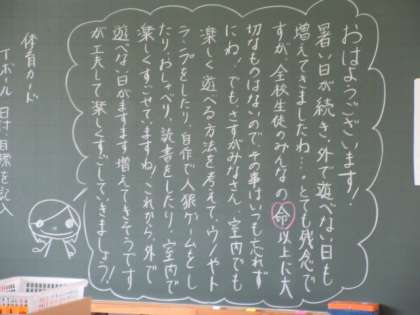 おはようございます!
暑い日が続き、外で遊べない日も
増えてきましたね…。とても残念で
すが、全校生徒のみんなの命以上に大
切なものはないので、その事はいつも忘れず
にね!でも、さすがみなさん、室内でも
楽しく遊べる方法を考えて、ウノやト
ランプをしたり、自作で人狼ゲームをし
たり、おしゃべり、読書をしたり、室内で
楽しくすごせてますね。これから、外で
遊べない日がますます増えてきそうです
が工夫して楽しくすごしていきましょう!
体育カード
日付、目標を記入